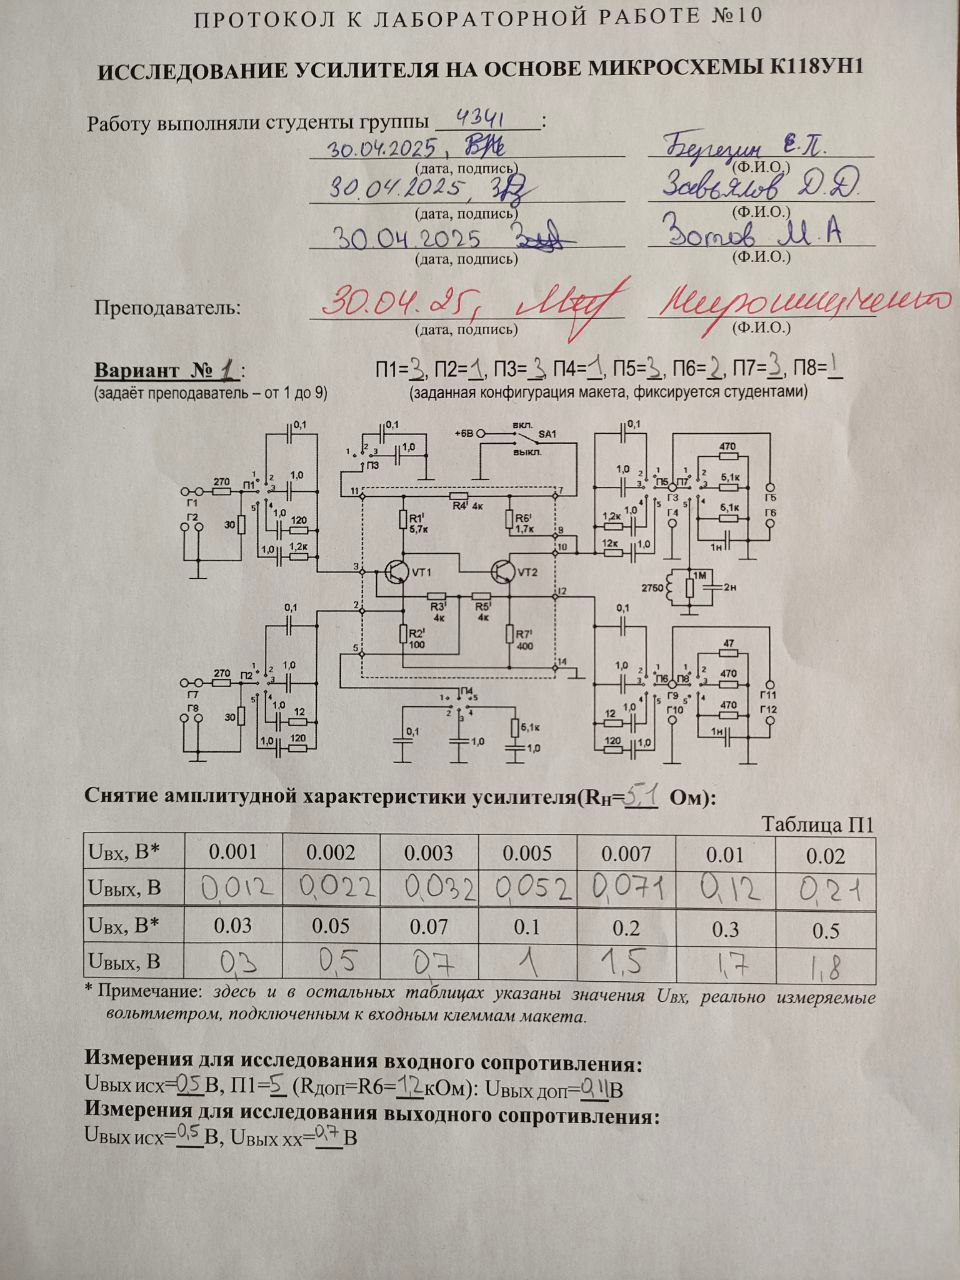 ПРОТОКОЛ К ЛАБОРАТОРНОЙ РАБОТЕ №10
ИССЛЕДОВАНИЕ УСИЛИТЕЛЯ НА ОСНОВЕ МИКРОСХЕМЫ К118УН1
Работу выполняли студенты группы 4341:
30.04.2025, Березин Е.П.
(дата, подпись) (Ф.И.О.)
30.04.2025, Завьялов Д.Д.
(дата, подпись) (Ф.И.О.)
30.04.2025 Зотов М.А
(дата, подпись) (Ф.И.О.)
Преподаватель: 30.04.25, Мирошниченко
(дата, подпись) (Ф.И.О.)
Вариант №1: П1=3, П2=1, П3=3, П4=1, П5=3, П6=2, П7=3, П8=1
(задаёт преподаватель – от 1 до 9) (заданная конфигурация макета, фиксируется студентами)
0,1 0,1 +6В вкл. SA1 выкл. 0,1 470
270 П1 1,0 1 2 3 П3 1,0 1,0 П5 П7 5,1к
Г1 Г2 30 1,0 120 11 R4' 4к 7 1,2к 1,0 Г3 Г4 5,1к Г5 Г6
1,0 1,2к R1' 5,7к R6' 1,7к 9 10 12к 1,0 1н
3 VT1 VT2 2750 1М 2н
0,1 2 R3' 4к R5' 4к 12 0,1
R2' 100 R7' 400 47
270 П2 1,0 5 14 1,0 П6 П8 470
Г7 Г8 30 1,0 12 П4 12 1,0 Г9 Г10 470 Г11 Г12
1,0 120 0,1 1,0 5,1к 1,0 120 1,0 1н
Снятие амплитудной характеристики усилителя(Rн=5,1 Ом):
Таблица П1
Uвх, В* 0.001 0.002 0.003 0.005 0.007 0.01 0.02
Uвых, В 0,012 0,022 0,032 0,052 0,071 0,12 0,21
Uвх, В* 0.03 0.05 0.07 0.1 0.2 0.3 0.5
Uвых, В 0,3 0,5 0,7 1 1,5 1,7 1,8
* Примечание: здесь и в остальных таблицах указаны значения Uвх, реально измеряемые
вольтметром, подключенным к входным клеммам макета.
Измерения для исследования входного сопротивления:
Uвых исх=0,5В, П1=5 (Rдоп=R6=1,2кОм): Uвых доп=0,11В
Измерения для исследования выходного сопротивления:
Uвых исх=0,5В, Uвых хх=0,7В